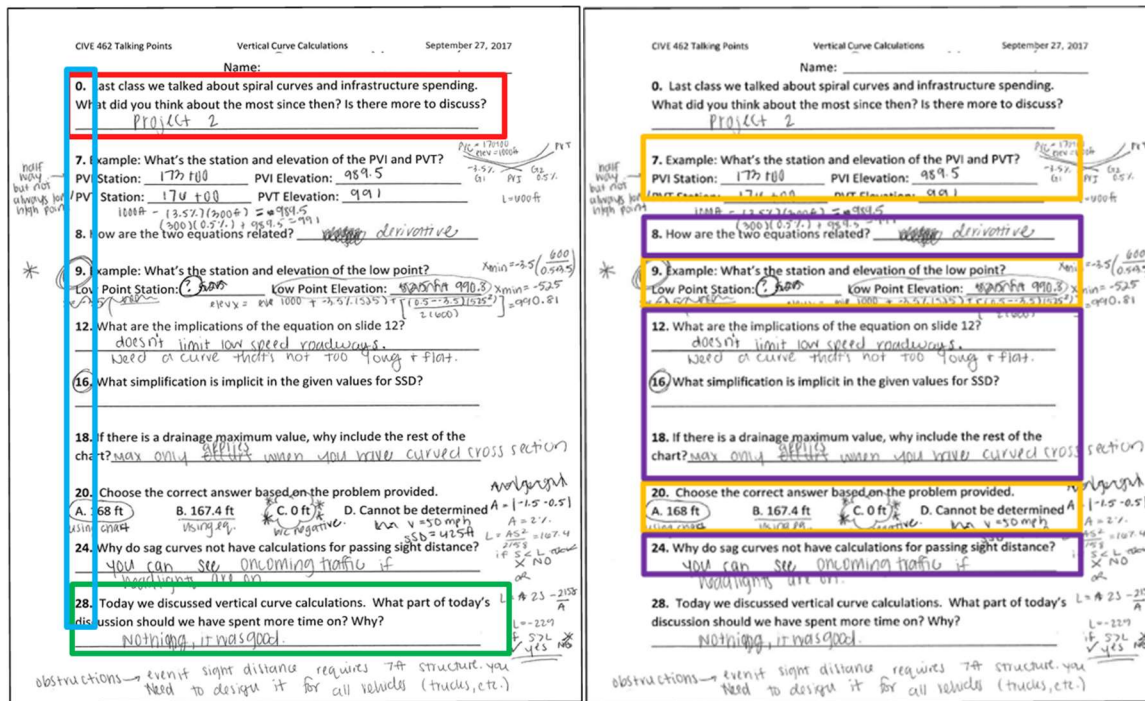 CIVE 462 Talking Points Vertical Curve Calculations September 27, 2017
Name:
0. Last class we talked about spiral curves and infrastructure spending.
What did you think about the most since then? Is there more to discuss?
Project 2
7. Example: What's the station and elevation of the PVI and PVT?
PVI Station: 173+00 PVI Elevation: 989.5
PVT Station: 176+00 PVT Elevation: 991
half
way
but not
always low/
high point
PVC = 170+00
elev = 1000ft
PVT
-3.5%
G1 PVI G2
0.5%
L=600ft
1000ft - (3.5%)(300ft) = 989.5
(300)(0.5%) + 989.5 = 991
8. How are the two equations related? derivative
* 9. Example: What's the station and elevation of the low point?
Low Point Station: ? Low Point Elevation: 990.8
Xmin=-525
=990.81
12. What are the implications of the equation on slide 12?
doesn't limit low speed roadways.
Need a curve that's not too long + flat.
16. What simplification is implicit in the given values for SSD?
18. If there is a drainage maximum value, why include the rest of the
chart? Max only applies when you have curved cross section
20. Choose the correct answer based on the problem provided.
A. 168 ft B. 167.4 ft C. 0 ft D. Cannot be determined
using chart using eq. b/c negative. V=50mph
SSD=425ft
A=|-1.5-0.5|
A=2%
24. Why do sag curves not have calculations for passing sight distance?
you can see oncoming traffic if
headlights are on.
28. Today we discussed vertical curve calculations. What part of today's
discussion should we have spent more time on? Why?
Nothing, it was good.
L=-229
if S>L
yes NO
obstructions → even if sight distance requires 7ft structure. you
Need to design it for all vehicles (trucks, etc.)
CIVE 462 Talking Points Vertical Curve Calculations September 27, 2017
Name:
0. Last class we talked about spiral curves and infrastructure spending.
What did you think about the most since then? Is there more to discuss?
Project 2
7. Example: What's the station and elevation of the PVI and PVT?
PVI Station: 173+00 PVI Elevation: 989.5
PVT Station: 176+00 PVT Elevation: 991
half
way
but not
always low/
high point
PVC = 170+00
elev = 1000ft
PVT
-3.5%
G1 PVI G2
0.5%
L=600ft
1000ft - (3.5%)(300ft) = 989.5
(300)(0.5%) + 989.5 = 991
8. How are the two equations related? derivative
* 9. Example: What's the station and elevation of the low point?
Low Point Station: ? Low Point Elevation: 990.8
Xmin=-525
=990.81
12. What are the implications of the equation on slide 12?
doesn't limit low speed roadways.
Need a curve that's not too long + flat.
16. What simplification is implicit in the given values for SSD?
18. If there is a drainage maximum value, why include the rest of the
chart? Max only applies when you have curved cross section
20. Choose the correct answer based on the problem provided.
A. 168 ft B. 167.4 ft C. 0 ft D. Cannot be determined
using chart using eq. b/c negative. V=50mph
SSD=425ft
A=|-1.5-0.5|
A=2%
24. Why do sag curves not have calculations for passing sight distance?
you can see oncoming traffic if
headlights are on.
28. Today we discussed vertical curve calculations. What part of today's
discussion should we have spent more time on? Why?
Nothing, it was good.
L=-229
if S>L
yes NO
obstructions → even if sight distance requires 7ft structure. you
Need to design it for all vehicles (trucks, etc.)